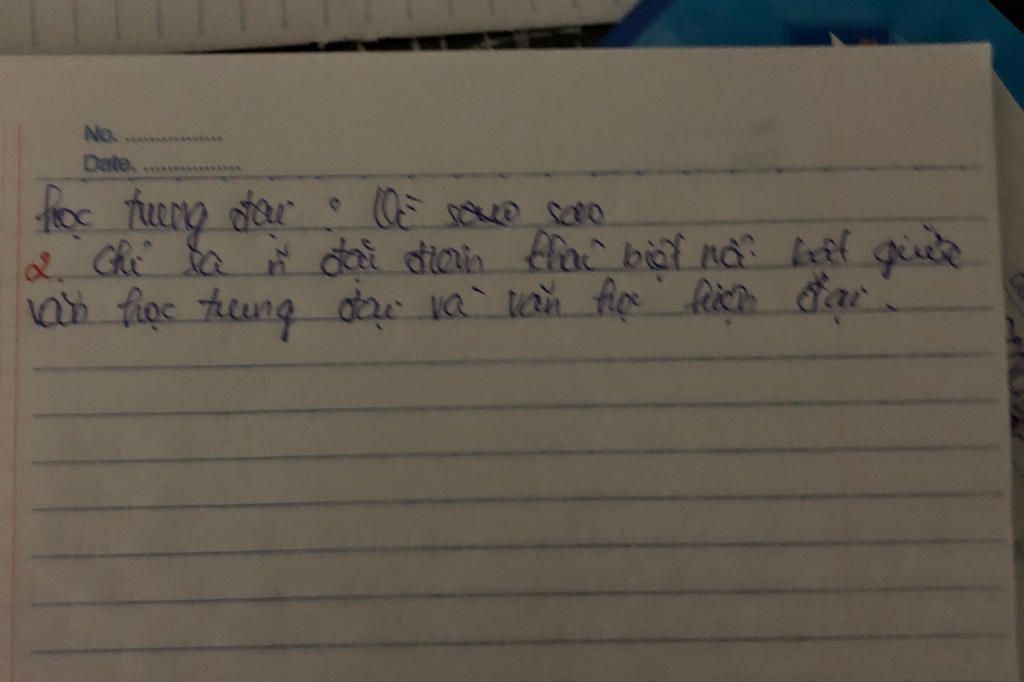 No. ................
Date. ................
học trung đại : Vì sao sao
2. Chỉ ra đặc điểm khác biệt nổi bật giữa
văn học trung đại và văn học hiện đại.